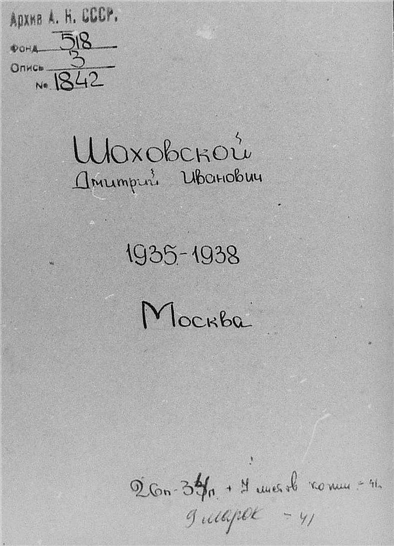 Архив А. Н. СССР.
Фонд 518
Опись 3
№ 1842
Шаховской
Дмитрий Иванович
1935-1938
Москва
26п-34п + 7 листов копии - 41
9 марок - 41